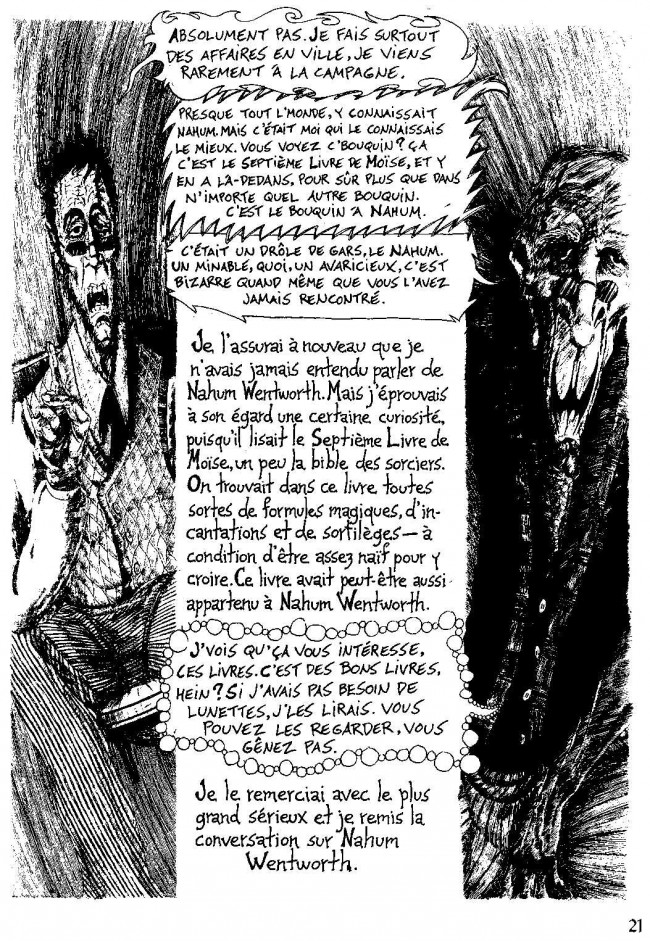 ABSOLUMENT PAS. JE FAIS SURTOUT
DES AFFAIRES EN VILLE, JE VIENS
RAREMENT À LA CAMPAGNE.
PRESQUE TOUT L'MONDE, Y CONNAISSAIT
NAHUM. MAIS C'ÉTAIT MOI QUI LE CONNAISSAIS
LE MIEUX. VOUS VOYEZ C'BOUQUIN? ÇA
C'EST LE SEPTIÈME LIVRE DE MOÏSE, ET Y
EN A LÀ-DEDANS, POUR SÛR PLUS QUE DANS
N'IMPORTE QUEL AUTRE BOUQUIN.
C'EST LE BOUQUIN À NAHUM.
C'ÉTAIT UN DRÔLE DE GARS, LE NAHUM.
UN MINABLE, QUOI, UN AVARICIEUX, C'EST
BIZARRE QUAND MÊME QUE VOUS L'AVEZ
JAMAIS RENCONTRÉ.
Je l'assurai à nouveau que je
n'avais jamais entendu parler de
Nahum Wentworth. Mais j'éprouvais
à son égard une certaine curiosité,
puisqu'il lisait le Septième Livre de
Moïse, un peu la bible des sorciers.
On trouvait dans ce livre toutes
sortes de formules magiques, d'in-
cantations et de sortilèges — à
condition d'être assez naïf pour y
croire. Ce livre avait peut-être aussi
appartenu à Nahum Wentworth.
J'VOIS QU'ÇA VOUS INTÉRESSE,
CES LIVRES. C'EST DES BONS LIVRES,
HEIN? SI J'AVAIS PAS BESOIN DE
LUNETTES, J'LES LIRAIS. VOUS
POUVEZ LES REGARDER, VOUS
GÊNEZ PAS.
Je le remerciai avec le plus
grand sérieux et je remis la
conversation sur Nahum
Wentworth.
21